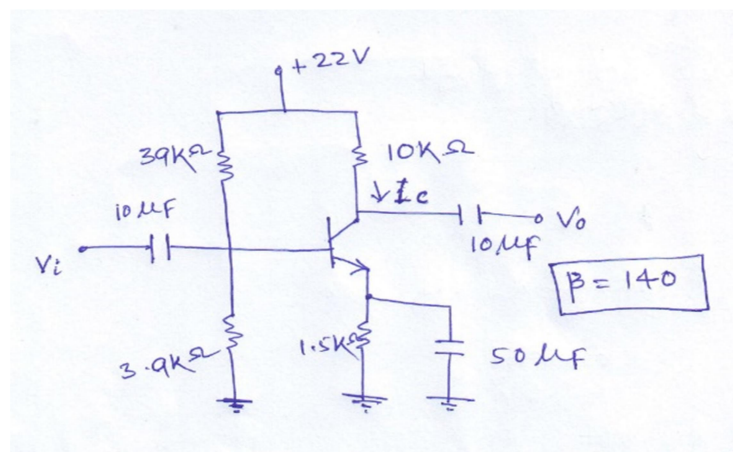 +22V
39KΩ
10KΩ
10μF
Ic
Vi
Vo
10μF
β = 140
3.9KΩ
1.5KΩ
50μF